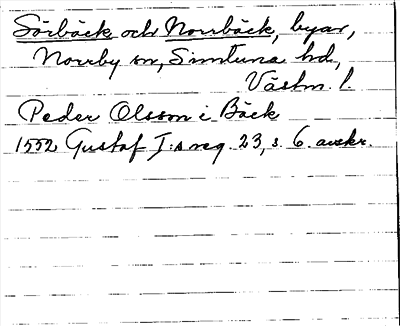 Sörbäck och Norrbäck, byar,
Norrby sn, Simtuna hd,
Västm. l.
Peder Olsson i Bäck
1552 Gustaf I:s reg. 23, s. 6. avskr.